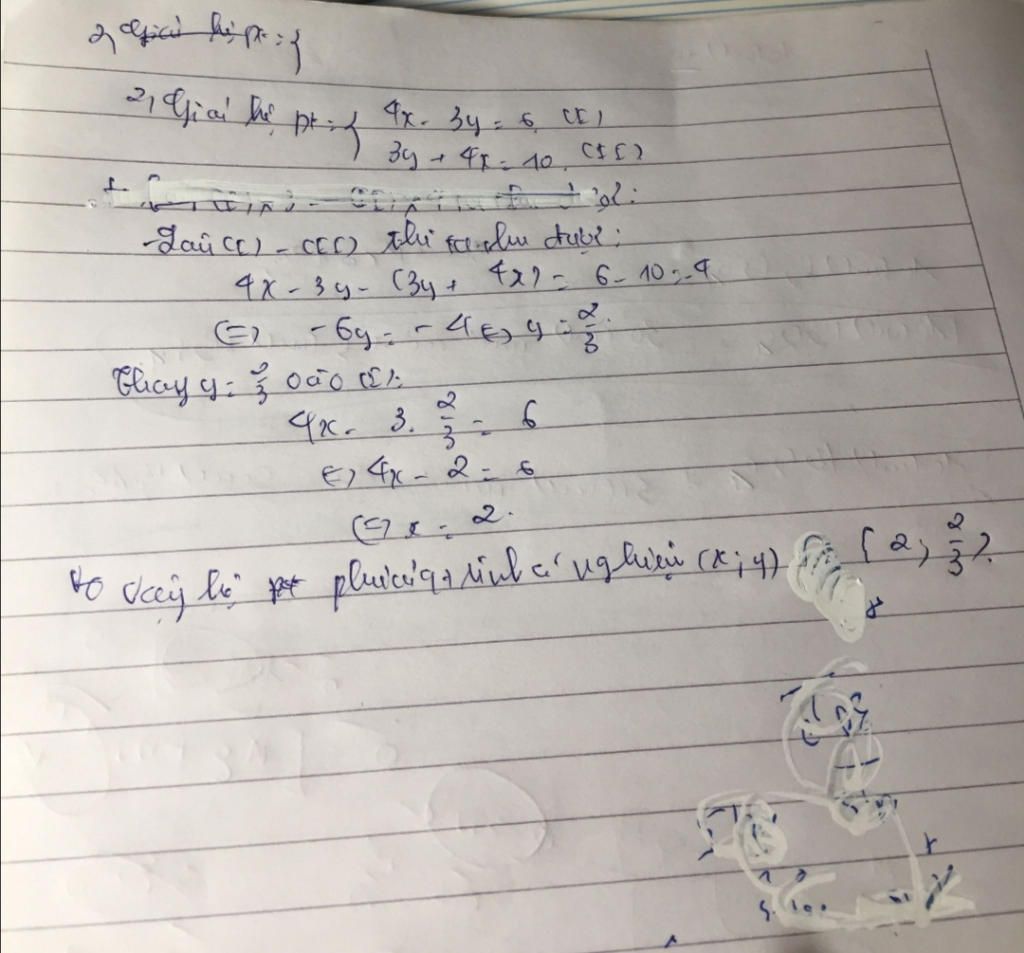 2, Giải hệ pt: {
2, Giải hệ pt: { 4x - 3y = 6 (I)
3y + 4x = 10 (II)
- Lấy (I) - (II) thì ta thu được:
4x - 3y - (3y + 4x) = 6 - 10 = -4
(=) - 6y = - 4 (=) y = 2/3.
Thay y = 2/3 vào (I):
4x - 3. 2/3 = 6
(=) 4x - 2 = 6
(=) x = 2.
Vậy hệ phương trình có nghiệm (x; y) (2; 2/3).